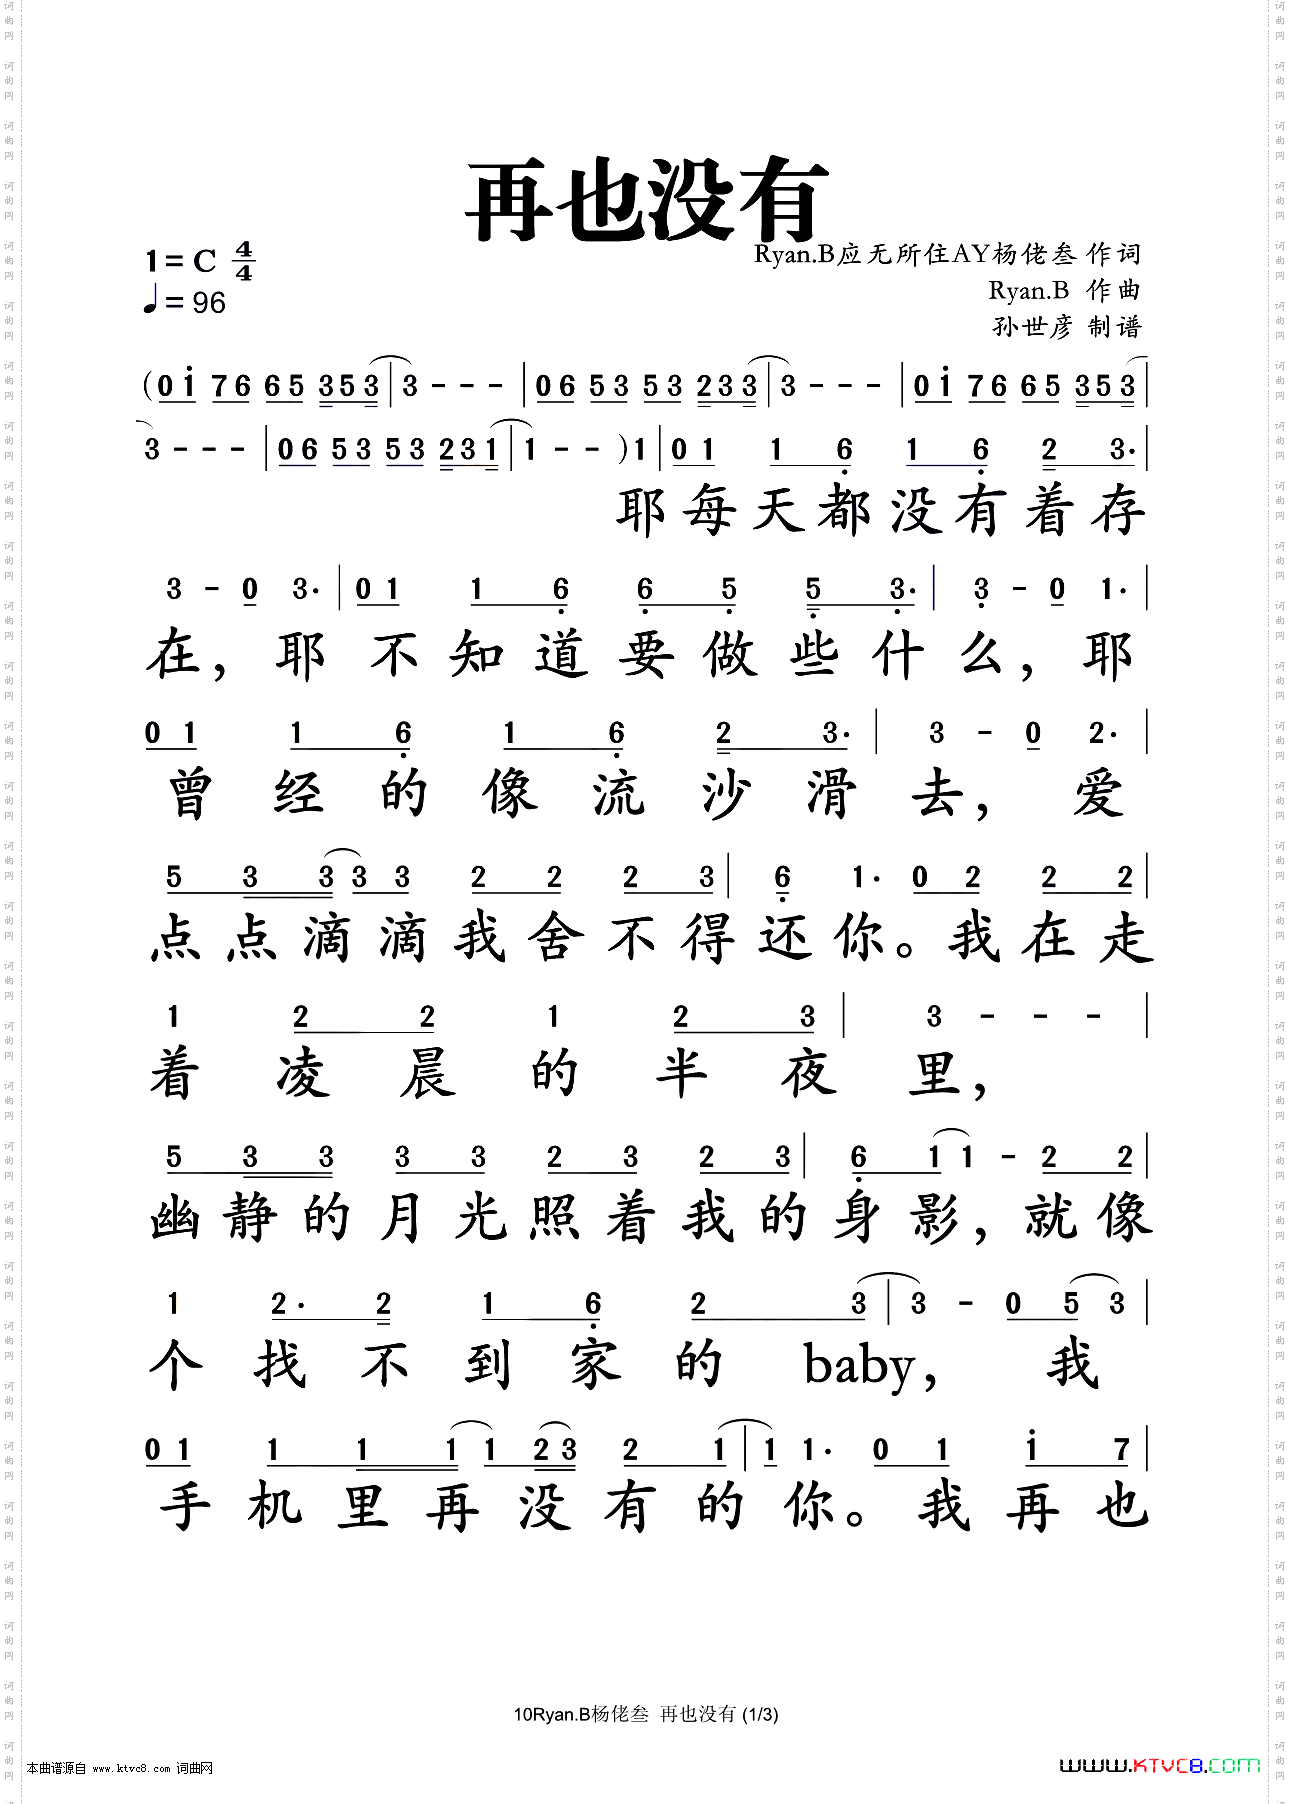 再也没有
1=C 4/4
♩=96
Ryan.B应无所住AY杨佬叁 作词
Ryan.B 作曲
孙世彦 制谱
(0 i 7 6 6 5 3 5 3 | 3 - - - | 0 6 5 3 5 3 2 3 3 | 3 - - - | 0 i 7 6 6 5 3 5 3 |
3 - - - | 0 6 5 3 5 3 2 3 1 | 1 - - ) 1 | 0 1 1 6 1 6 2 3. |
耶每天都没有着存
3 - 0 3. | 0 1 1 6 6 5 5 3. | 3 - 0 1. |
在，耶不知道要做些什么，耶
0 1 1 6 1 6 2 3. | 3 - 0 2. |
曾经的像流沙滑去，爱
5 3 3 3 3 2 2 2 3 | 6 1. 0 2 2 2 |
点点滴滴我舍不得还你。我在走
1 2 2 1 2 3 | 3 - - - |
着凌晨的半夜里，
5 3 3 3 3 2 3 2 3 | 6 1 1 - 2 2 |
幽静的月光照着我的身影，就像
1 2. 2 1 6 2 3 | 3 - 0 5 3 |
个找不到家的baby，我
0 1 1 1 1 1 2 3 2 1 | 1 1. 0 1 i 7 |
手机里再没有的你。我再也
10Ryan.B杨佬叁 再也没有 (1/3)
本曲谱源自 www.ktvc8.com 词曲网
www.KTVC8.com